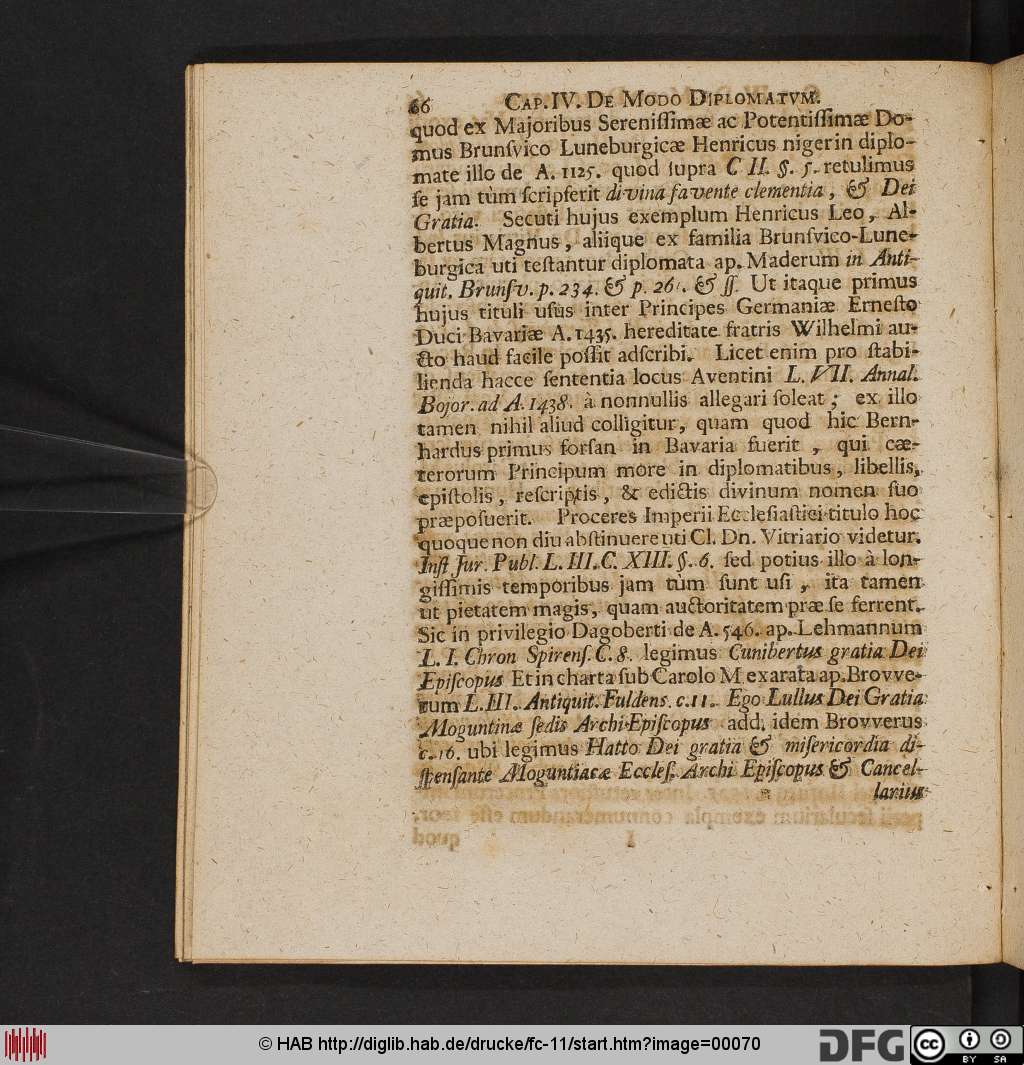 66 CAP. IV. DE MODO DIPLOMATVM.
quod ex Majoribus Sereniſſimæ ac Potentiſſimæ Do-
mus Brunſvico Luneburgicæ Henricus niger in diplo-
mate illo de A. 1125. quod ſupra C II. §. 5. retulimus
ſe jam tùm ſcripſerit divina favente clementia, & Dei
Gratia. Secuti hujus exemplum Henricus Leo, Al-
bertus Magnus, aliique ex familia Brunſvico-Lune-
burgica uti teſtantur diplomata ap. Maderum in Anti-
quit. Brunſv. p. 234. & p. 26 . & ſſ. Ut itaque primus
hujus tituli uſus inter Principes Germaniæ Erneſto
Duci Bavariæ A. 1435. hereditate fratris Wilhelmi au-
cto haud facile poſſit adſcribi. Licet enim pro ſtabi-
lienda hacce ſententia locus Aventini L. VII. Annal.
Bojor. ad A. 1438. à nonnullis allegari ſoleat; ex illo
tamen nihil aliud colligitur, quam quod hic Bern-
hardus primus forſan in Bavaria fuerit, qui cæ-
terorum Principum more in diplomatibus, libellis,
epiſtolis, reſcriptis, & edictis divinum nomen ſuo
præpoſuerit. Proceres Imperii Eccleſiaſtici titulo hoc
quoque non diu abſtinuere uti Cl. Dn. Vitriario videtur.
Inſt Jur. Publ. L. III. C. XIII. §. 6. ſed potius illo à lon-
giſſimis temporibus jam tùm ſunt uſi, ita tamen
ut pietatem magis, quam auctoritatem præ ſe ferrent.
Sic in privilegio Dagoberti de A. 546. ap. Lehmannum
L. I. Chron Spirenſ. C. 8. legimus Cunibertus gratia Dei
Epiſcopus Et in charta ſub Carolo M exarata ap. Brovve-
rum L. III. Antiquit. Fuldens. c. 11. Ego Lullus Dei Gratia
Moguntinæ ſedis Archi-Epiſcopus add. idem Brovverus
c. 16. ubi legimus Hatto Dei gratia & miſericordia di-
ſpenſante Moguntiacæ Eccleſ. Archi Epiſcopus & Cancel-
larius
© HAB http://diglib.hab.de/drucke/fc-11/start.htm?image=00070
DFG
cc BY SA